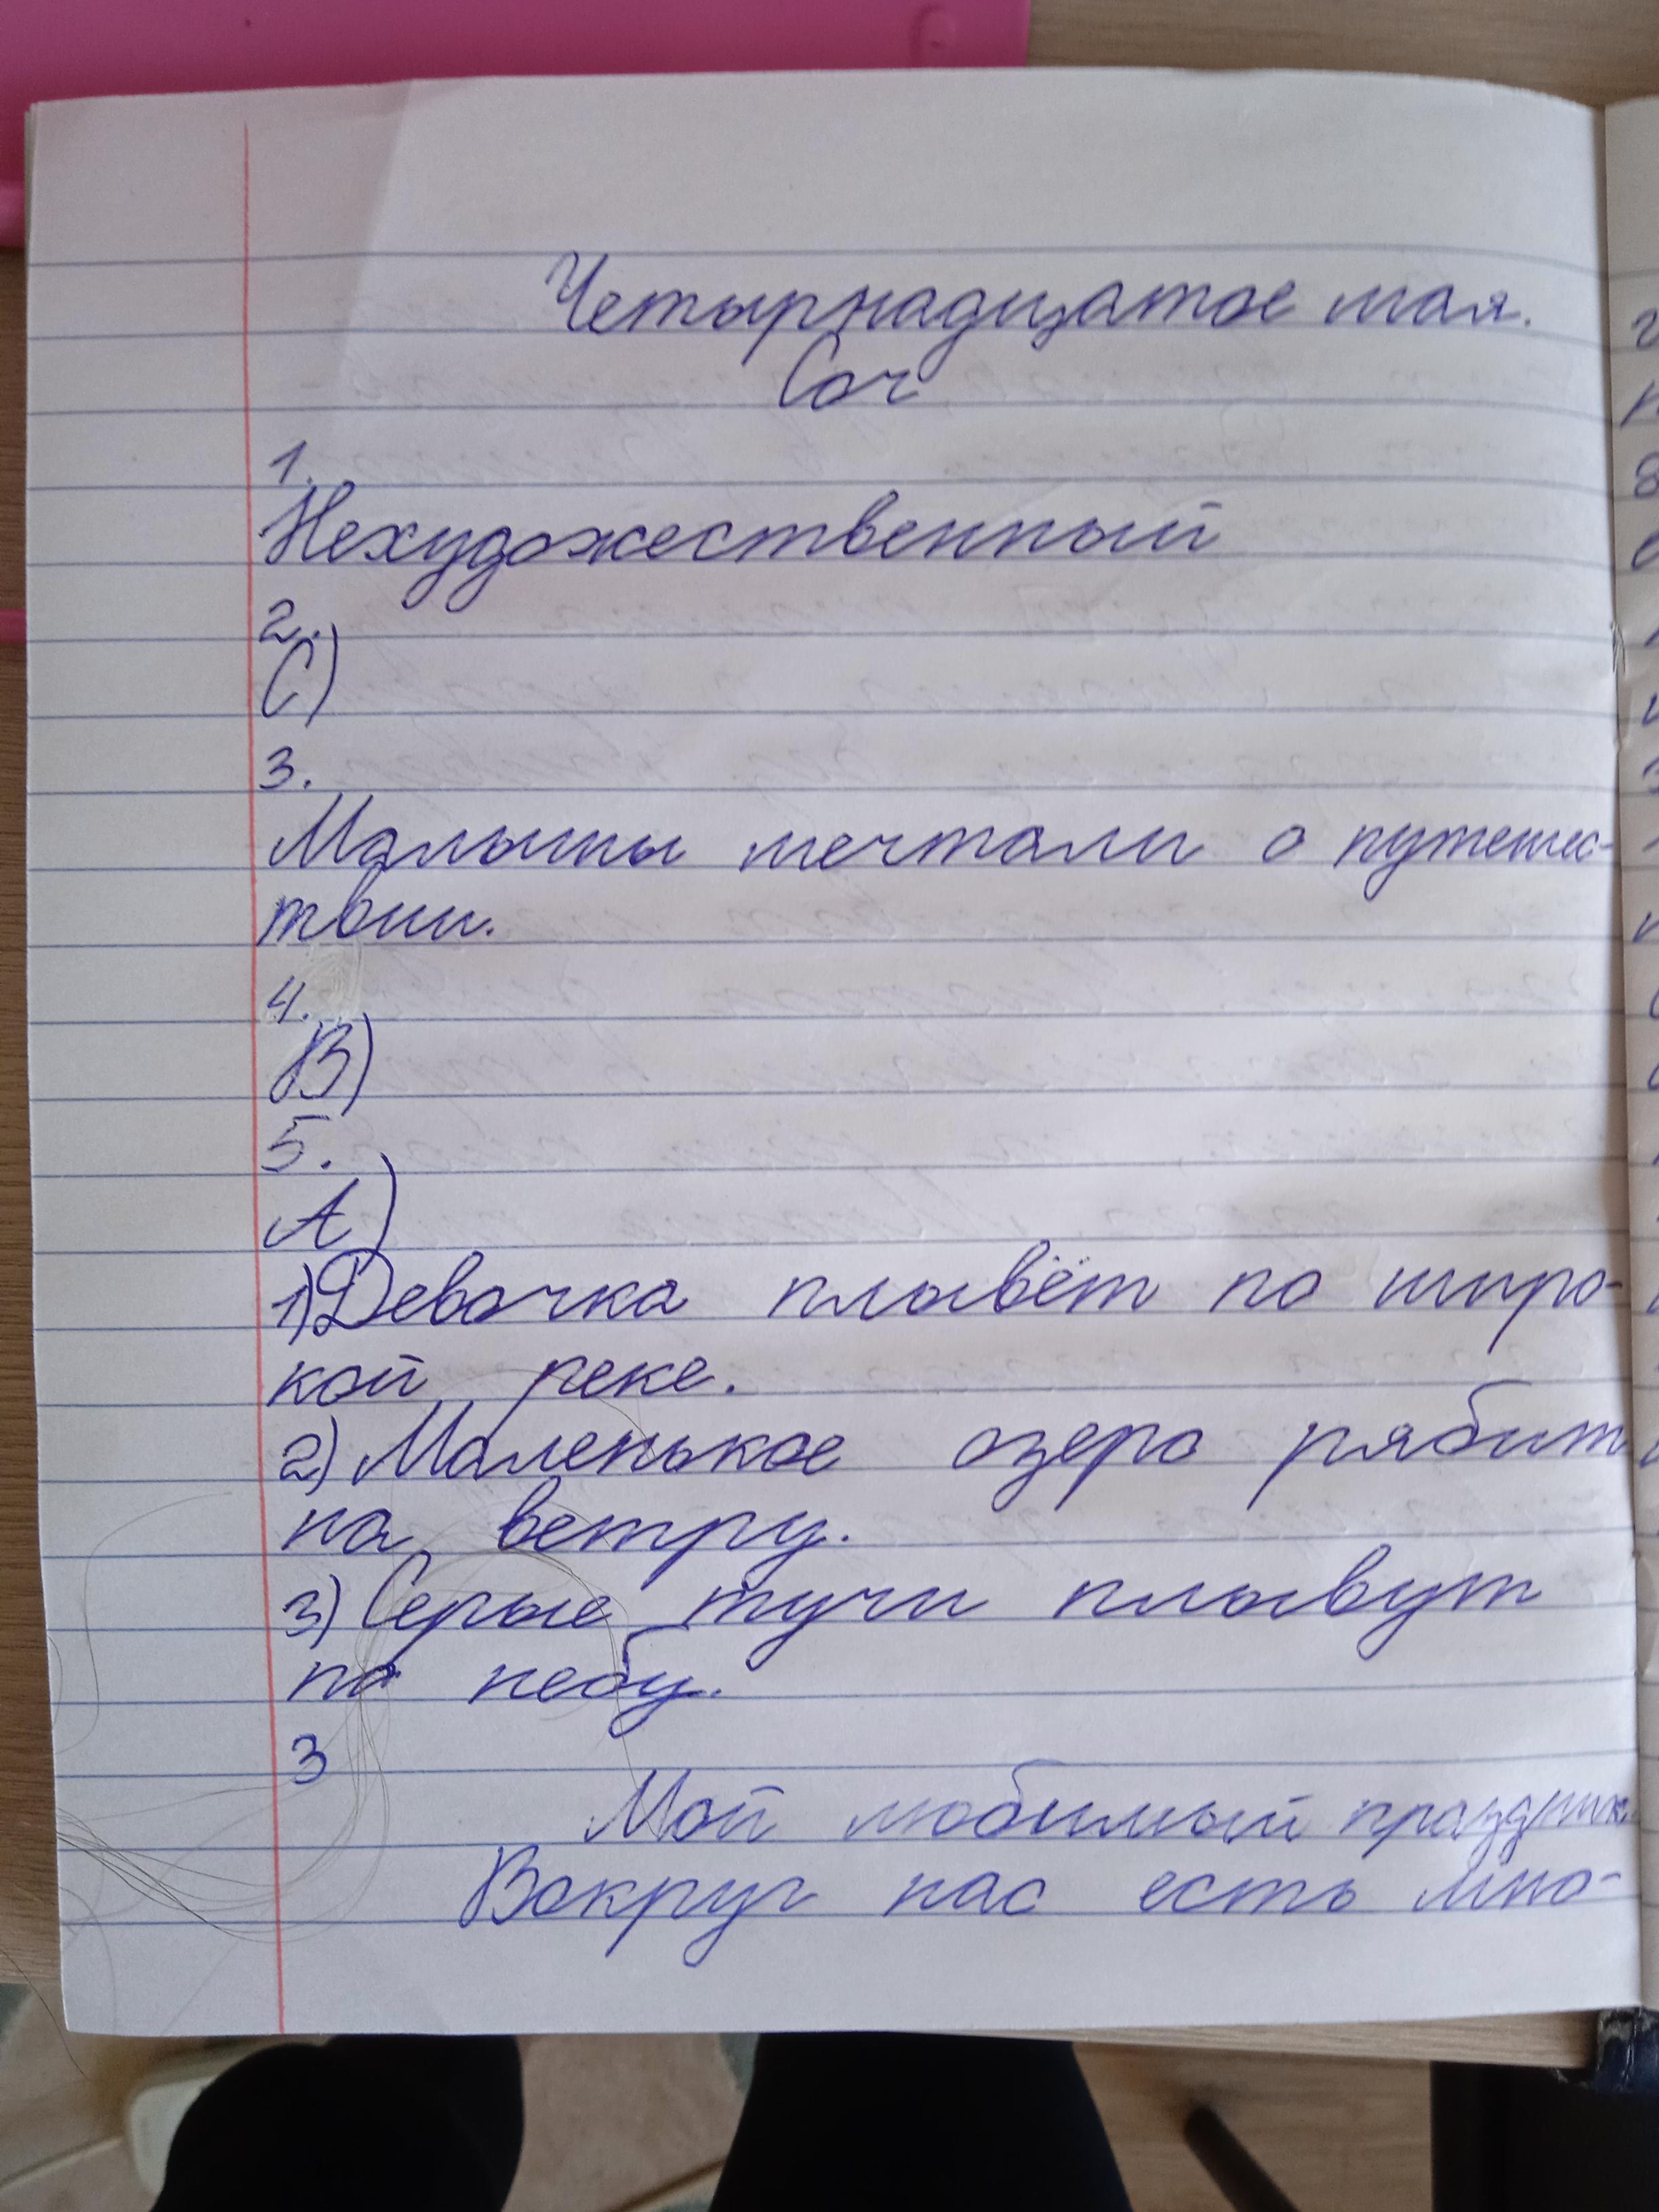 Четырнадцатое мая.
Соч
1.
Нехудожественный
2.
С)
3.
Малыши мечтали о путешес-
твии.
4.
В)
5.
А)
1) Девочка плывёт по широ-
кой реке.
2) Маленькое озеро рябит
на ветру.
3) Серые тучи плывут
по небу.
3
Мой любимый праздник.
Вокруг нас есть мно-